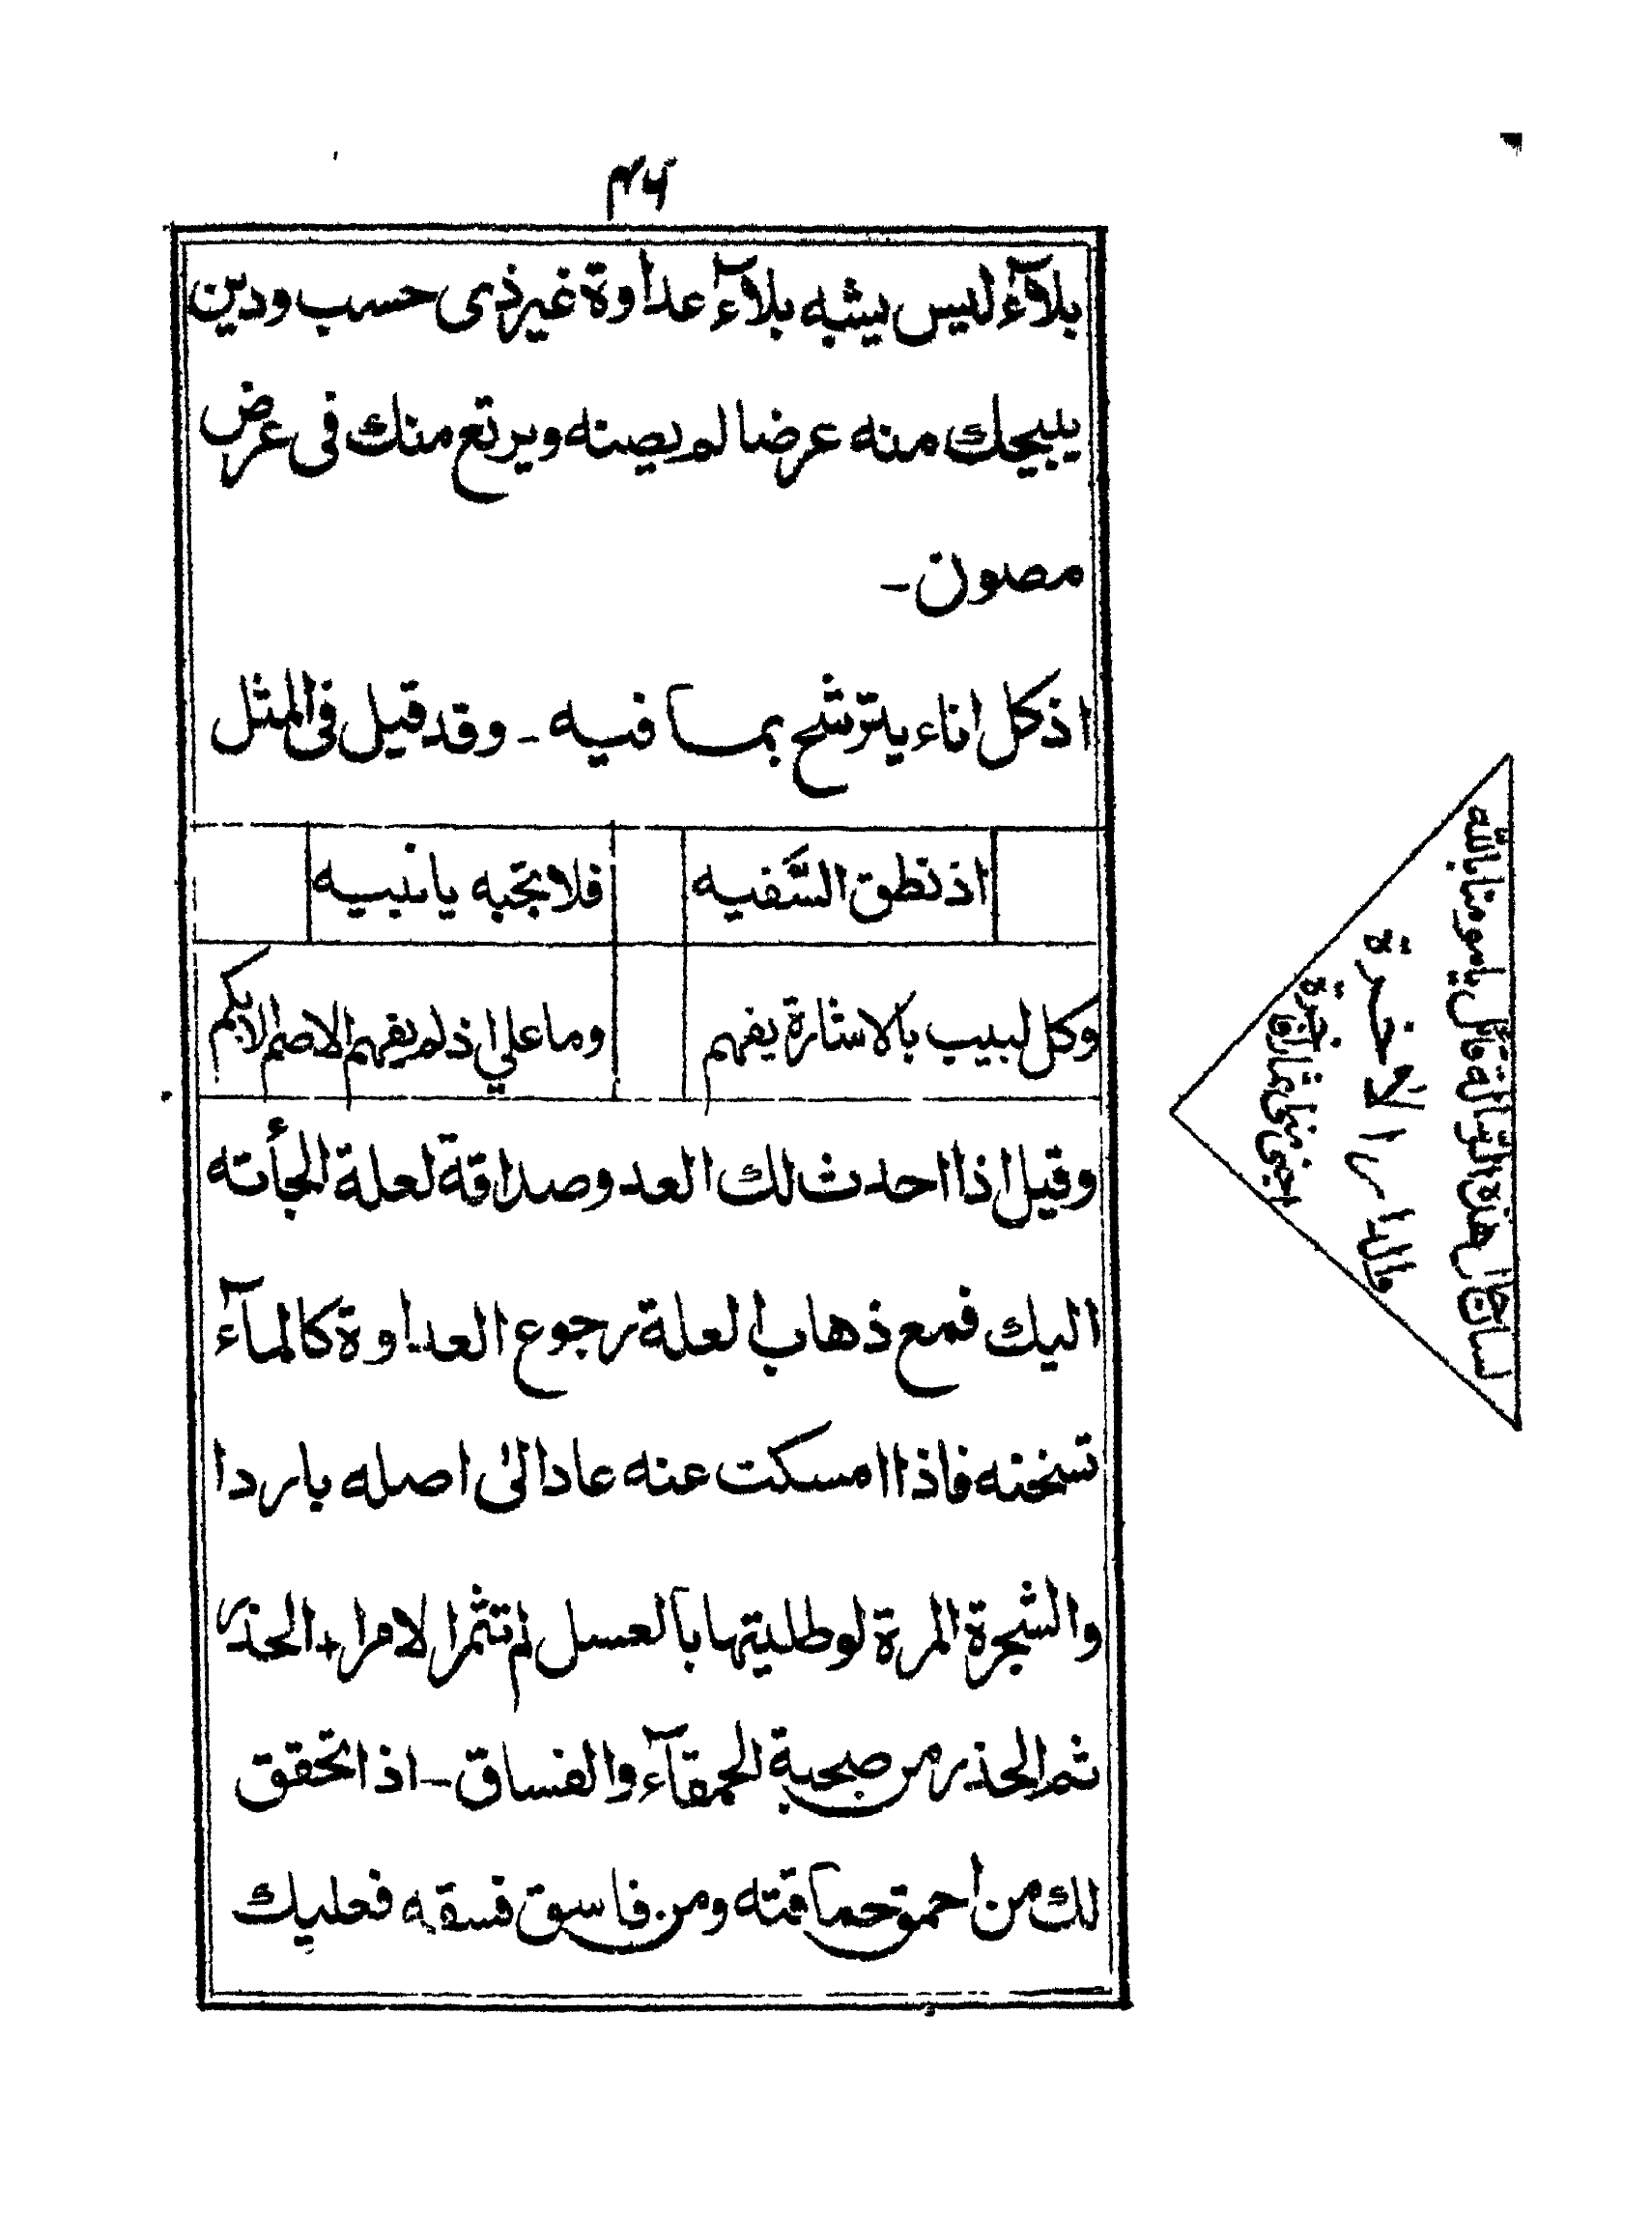 ۴۶
بلآء ليس يشبه بلآء عداوة غير ذى حسب ودين
يبيحك منه عرضا لم يصنه ويرتع منك فى عرض
مصون -
اذ كل اناء يترشح بما فيه - وقد قيل فى المثل
اذ نطق السّفيه فلا تجبه يا نبيه
وكل لبيب بالاشارة يفهم وما على اذ لم يفهم الاصم الابكم
وقيل اذا احدث لك العدو صداقة لعلة الجأته
اليك فمع ذهاب العلة رجوع العداوة كالمآء
تسخنه فاذا امسكت عنه عاد الى اصله باردا
والشجرة المرة لو طليتها بالعسل لم تثمر الا مرا + الحذر
ثم الحذر من صحبة الحمقآء والفساق - اذا تحقق
لك من احمق حماقته ومن فاسق فسقه فعليك
لسان حال هذه الرسالة قائل يا مومنا بالله
والدار الاخرة